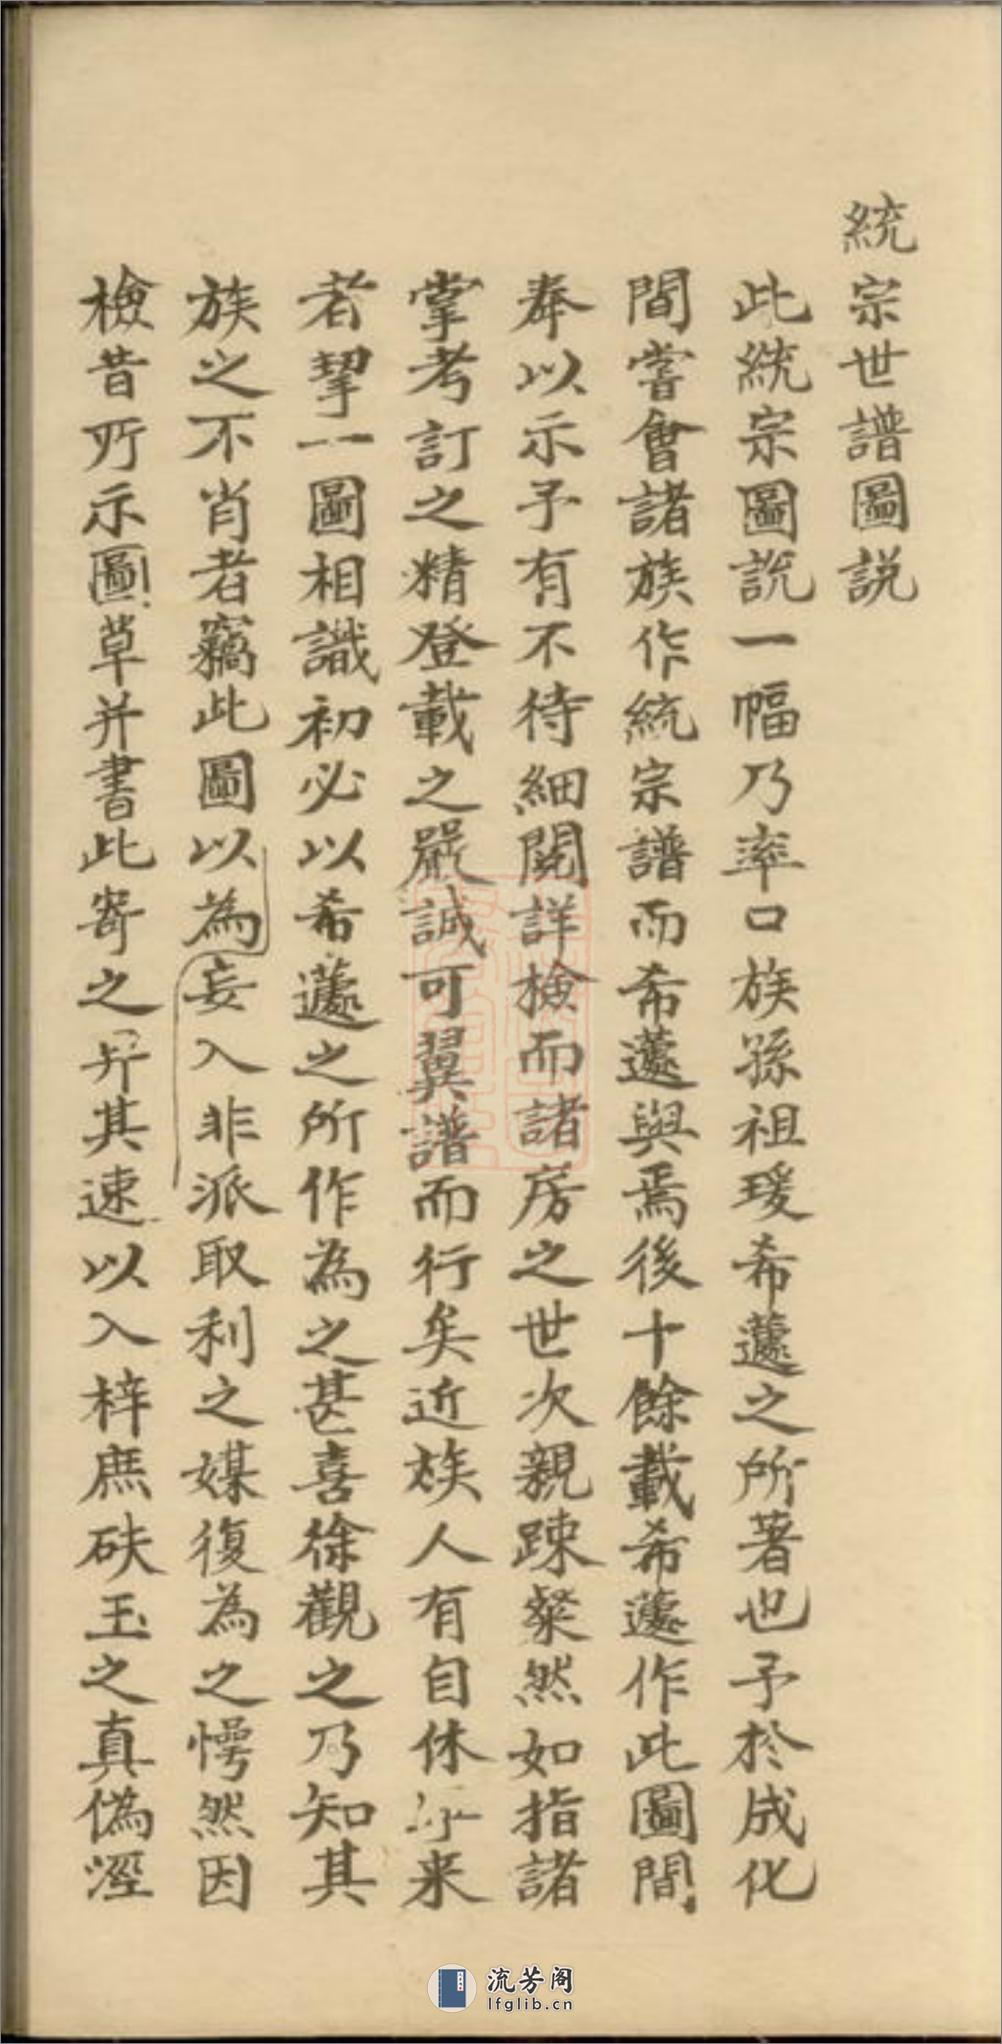 統宗世譜圖説
此統宗圖説一幅乃率口族孫祖瑗希蘧之所著也予於成化
間嘗會諸族作統宗譜而希蘧與焉後十餘載希蘧作此圖間
奉以示予有不待細閱詳檢而諸房之世次親踈粲然如指諸
掌考訂之精登載之嚴誠可翼譜而行矣近族人有自休來
者挈一圖相識初必以希蘧之所作為之甚喜徐觀之乃知其
族之不肖者竊此圖以為妄入非派取利之媒復為之愕然因
檢昔所示圖草并書此寄之并其速以入梓庶砆玉之真偽
流芳阁
lfglib.cn